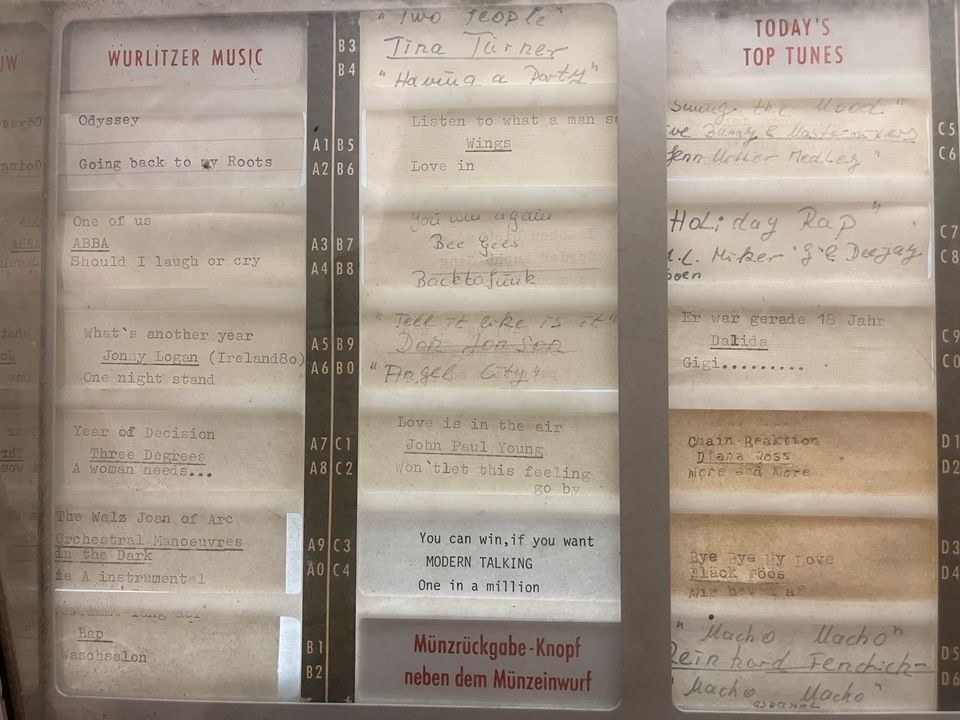 WURLITZER MUSIC
Odyssey
Going back to my Roots
A1
A2
One of us
ABBA
Should I laugh or cry
A3
A4
What`s another year
Jonny Logan (Ireland80)
One night stand
A5
A6
Year of Decision
Three Degrees
A woman needs...
A7
A8
The Walz Joan of Arc
Orchestral Manoeuvres
in the Dark
ie A instrumental
A9
A0
Bap
Waschsalon
B1
B2
B3
B4
"Two People"
Tina Turner
"Having a Party"
B5
B6
Listen to what a man s
Wings
Love in
B7
B8
You win again
Bee Gees
Backtafunk
B9
B0
"Tell it like is it"
Don Jonson
"Angel City"
C1
C2
Love is in the air
John Paul Young
Won`tlet this feeling
go by
C3
C4
You can win,if you want
MODERN TALKING
One in a million
Münzrückgabe-Knopf
neben dem Münzeinwurf
TODAY'S
TOP TUNES
Swing the Mood"
ve Bunny & Mastermixers
lenn Miller Medley"
C5
C6
Holiday Rap"
M.C. Miker 'G'& Deejay
C7
C8
Er war gerade 18 Jahr
Dalida
Gigi.........
C9
C0
Chain Reaktion
Diana Ross
More and More
D1
D2
Bye Bye My Love
Bläck Fööss
D3
D4
"Macho Macho"
Reinhard Fendich-
"Macho Macho"
D5
D6